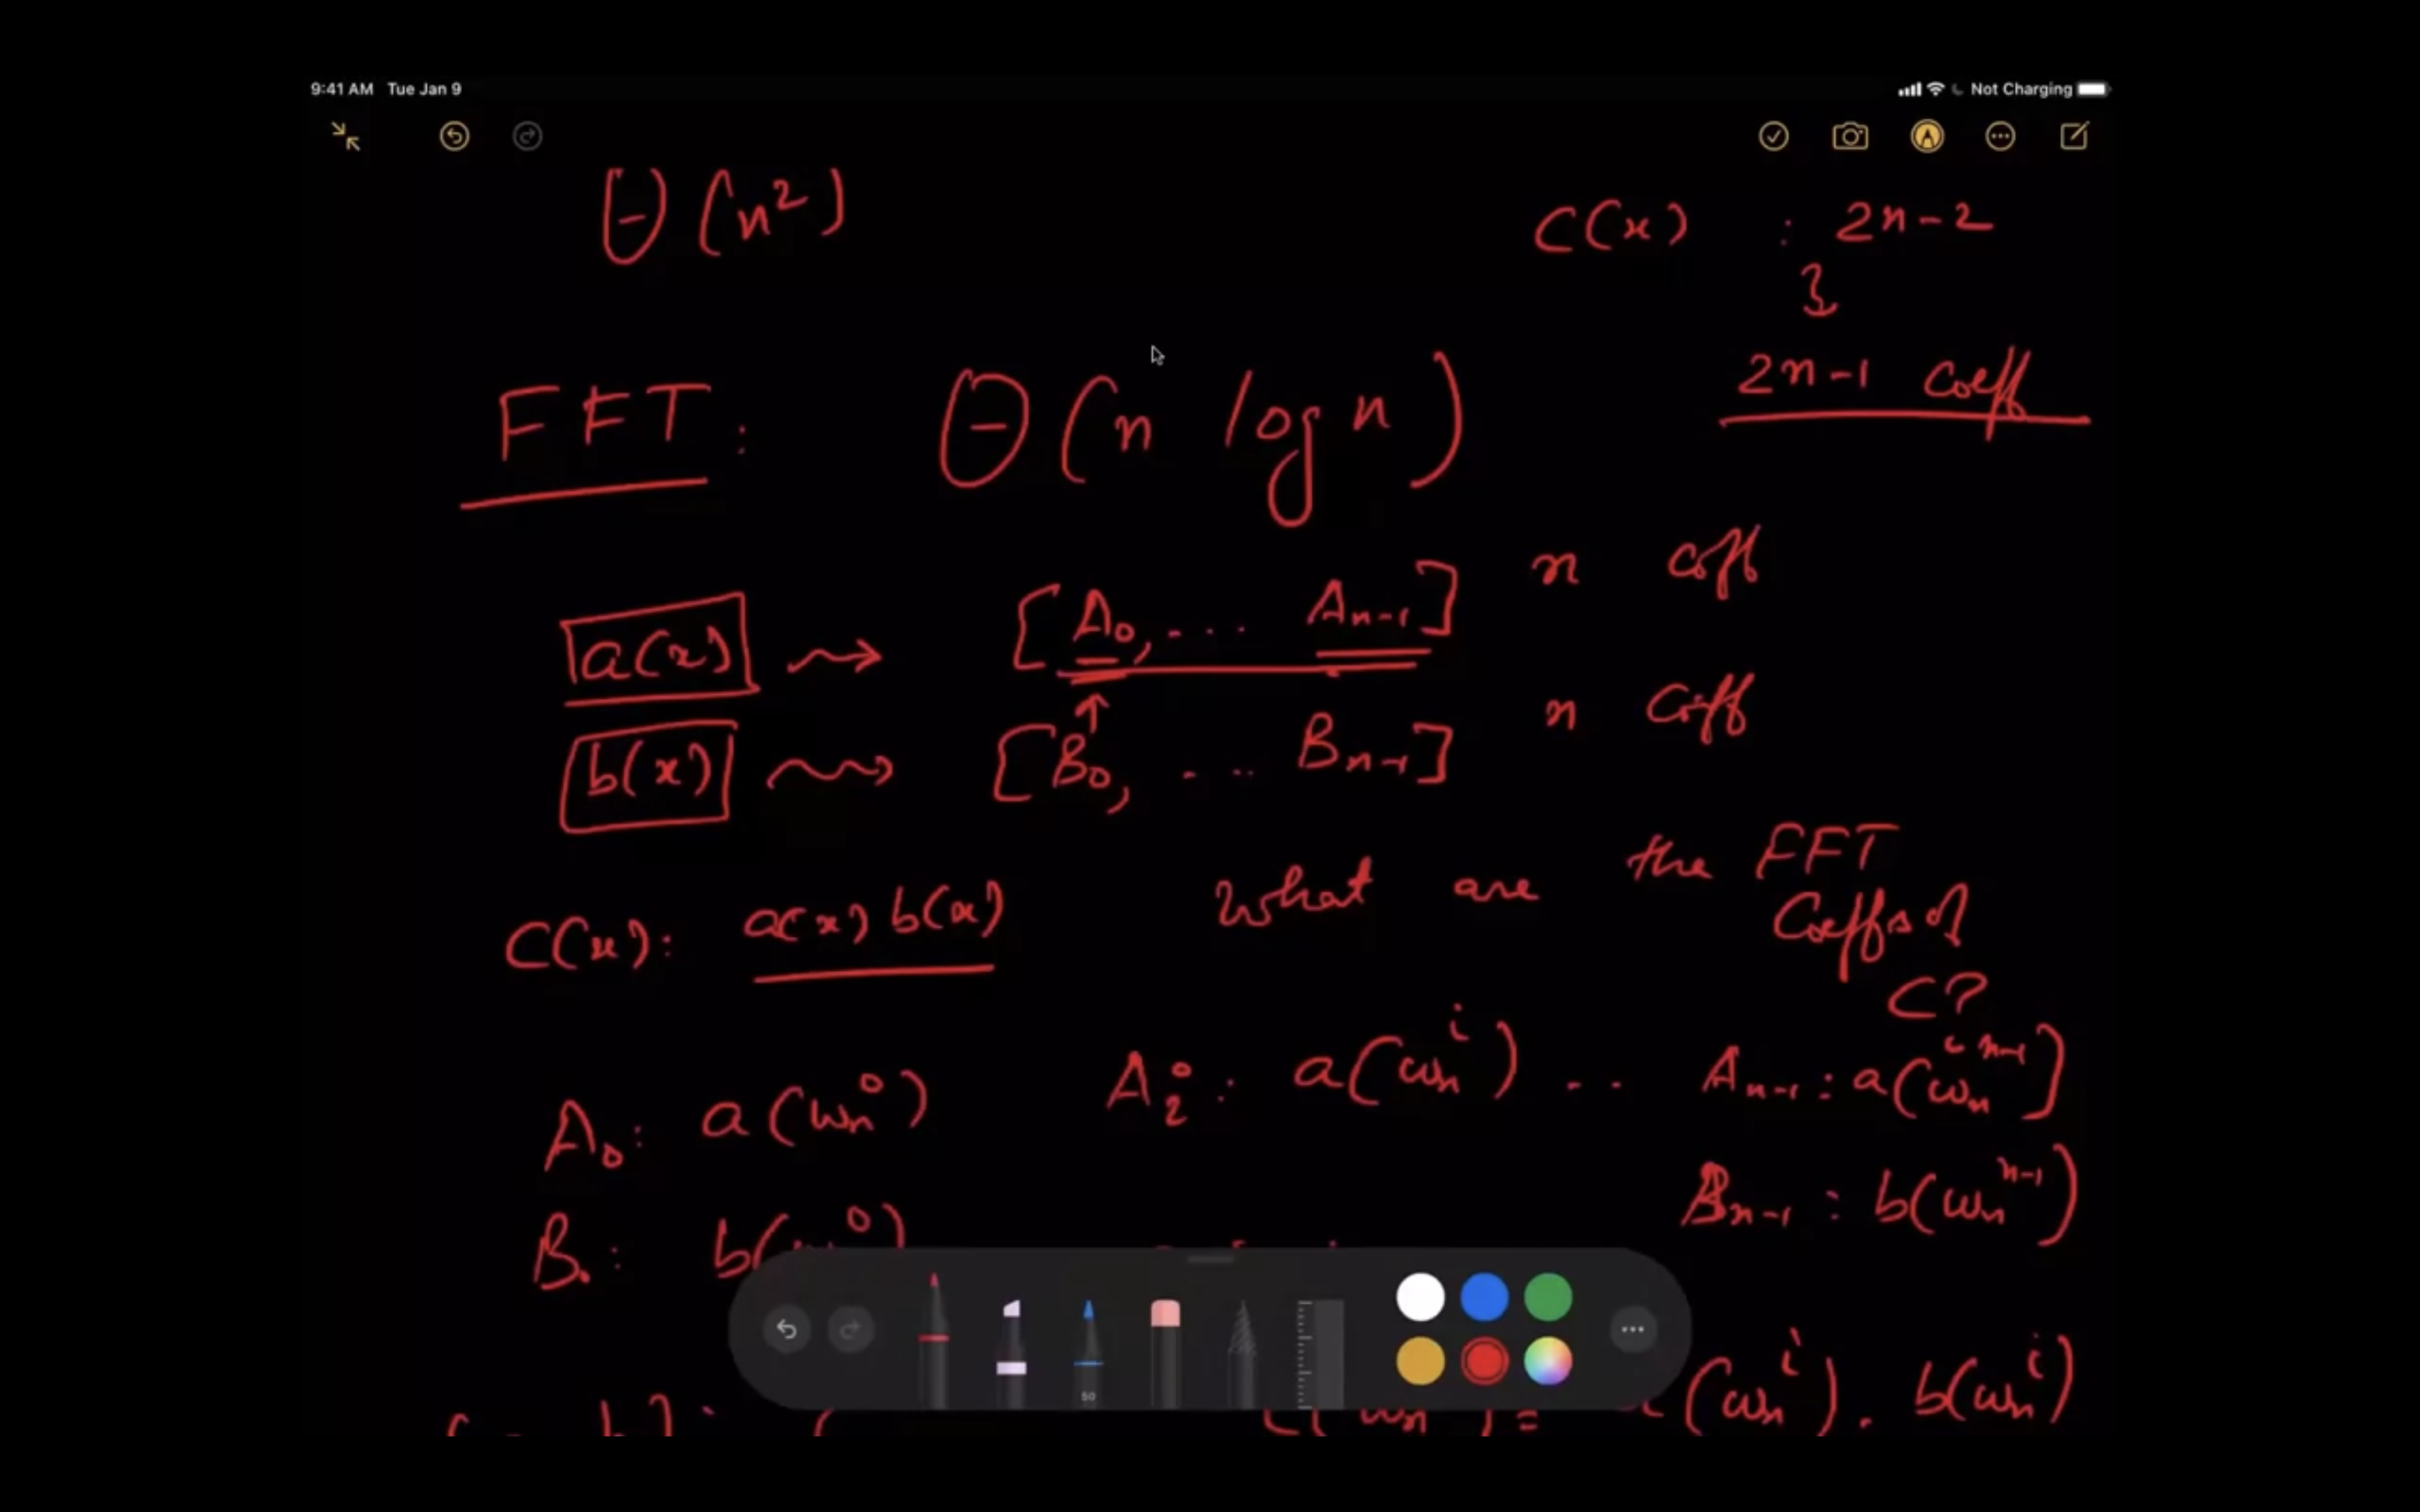 9:41 AM Tue Jan 9
Not Charging
Θ(n²)
C(x) : 2n-2
2n-1 Coeff
FFT: Θ(n log n)
a(x) ⇝ [A₀, ... Aₙ₋₁] n coff
b(x) ⇝ [B₀, ... Bₙ₋₁] n Coff
C(x): a(x) b(x) What are the FFT
Coeffs of
C?
A₀: a(ωₙ⁰) Aᵢ: a(ωₙⁱ) .. Aₙ₋₁: a(ωₙⁿ⁻¹)
Bₙ₋₁ : b(ωₙⁿ⁻¹)
B₀: b(
50
(ωₙⁱ). b(ωₙⁱ)